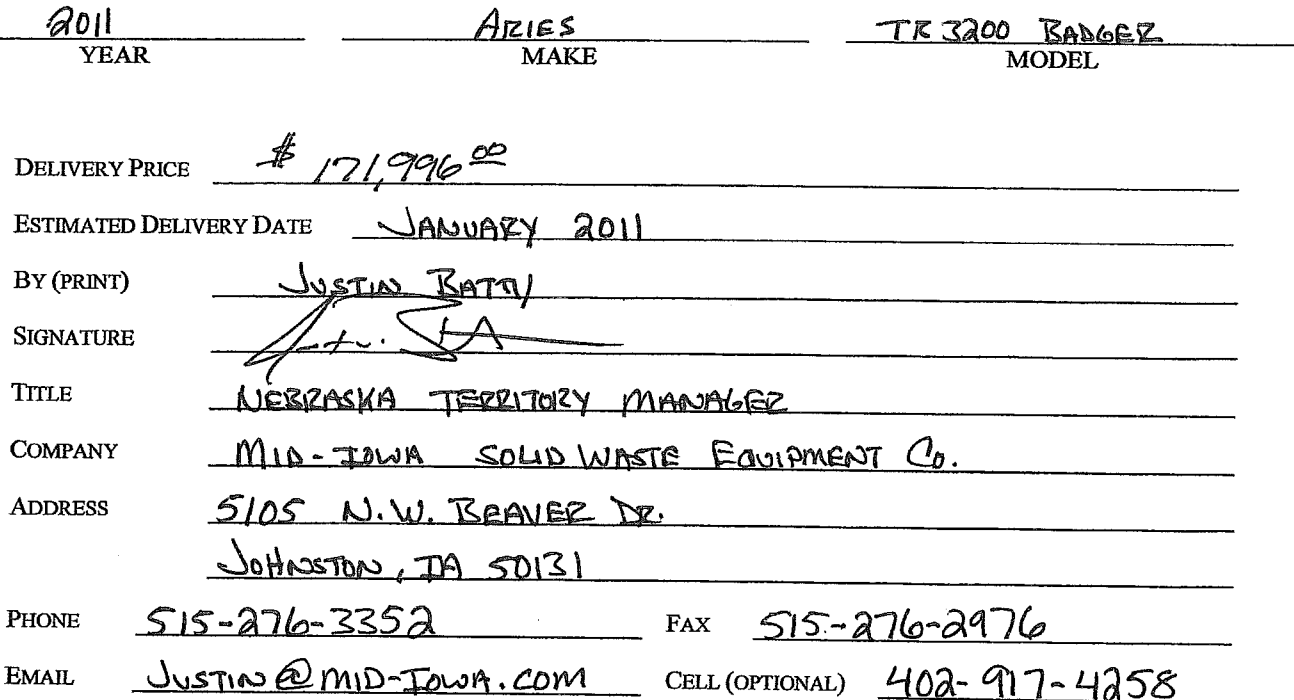 2011 ARIES TR3200 BADGER
YEAR MAKE MODEL
DELIVERY PRICE $ 171,996 00
ESTIMATED DELIVERY DATE JANUARY 2011
BY (PRINT) JUSTIN BATTY
SIGNATURE
TITLE NEBRASKA TERRITORY MANAGER
COMPANY MID-IOWA SOLID WASTE EQUIPMENT CO.
ADDRESS 5105 N.W. BEAVER DR.
JOHNSTON, IA 50131
PHONE 515-276-3352 FAX 515-276-2976
EMAIL JUSTIN@MID-IOWA.COM CELL (OPTIONAL) 402-917-4258